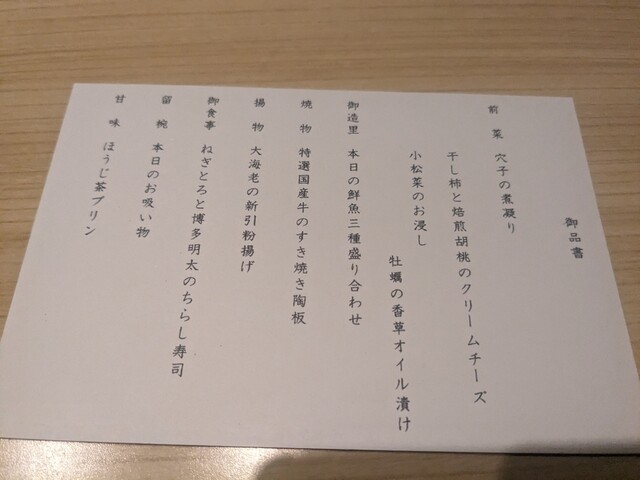 御品書
前菜 穴子の煮凝り
干し柿と焙煎胡桃のクリームチーズ
小松菜のお浸し
牡蠣の香草オイル漬け
御造里 本日の鮮魚三種盛り合わせ
焼物 特選国産牛のすき焼き陶板
揚物 大海老の新引粉揚げ
御食事 ねぎとろと博多明太のちらし寿司
留椀 本日のお吸い物
甘味 ほうじ茶プリン